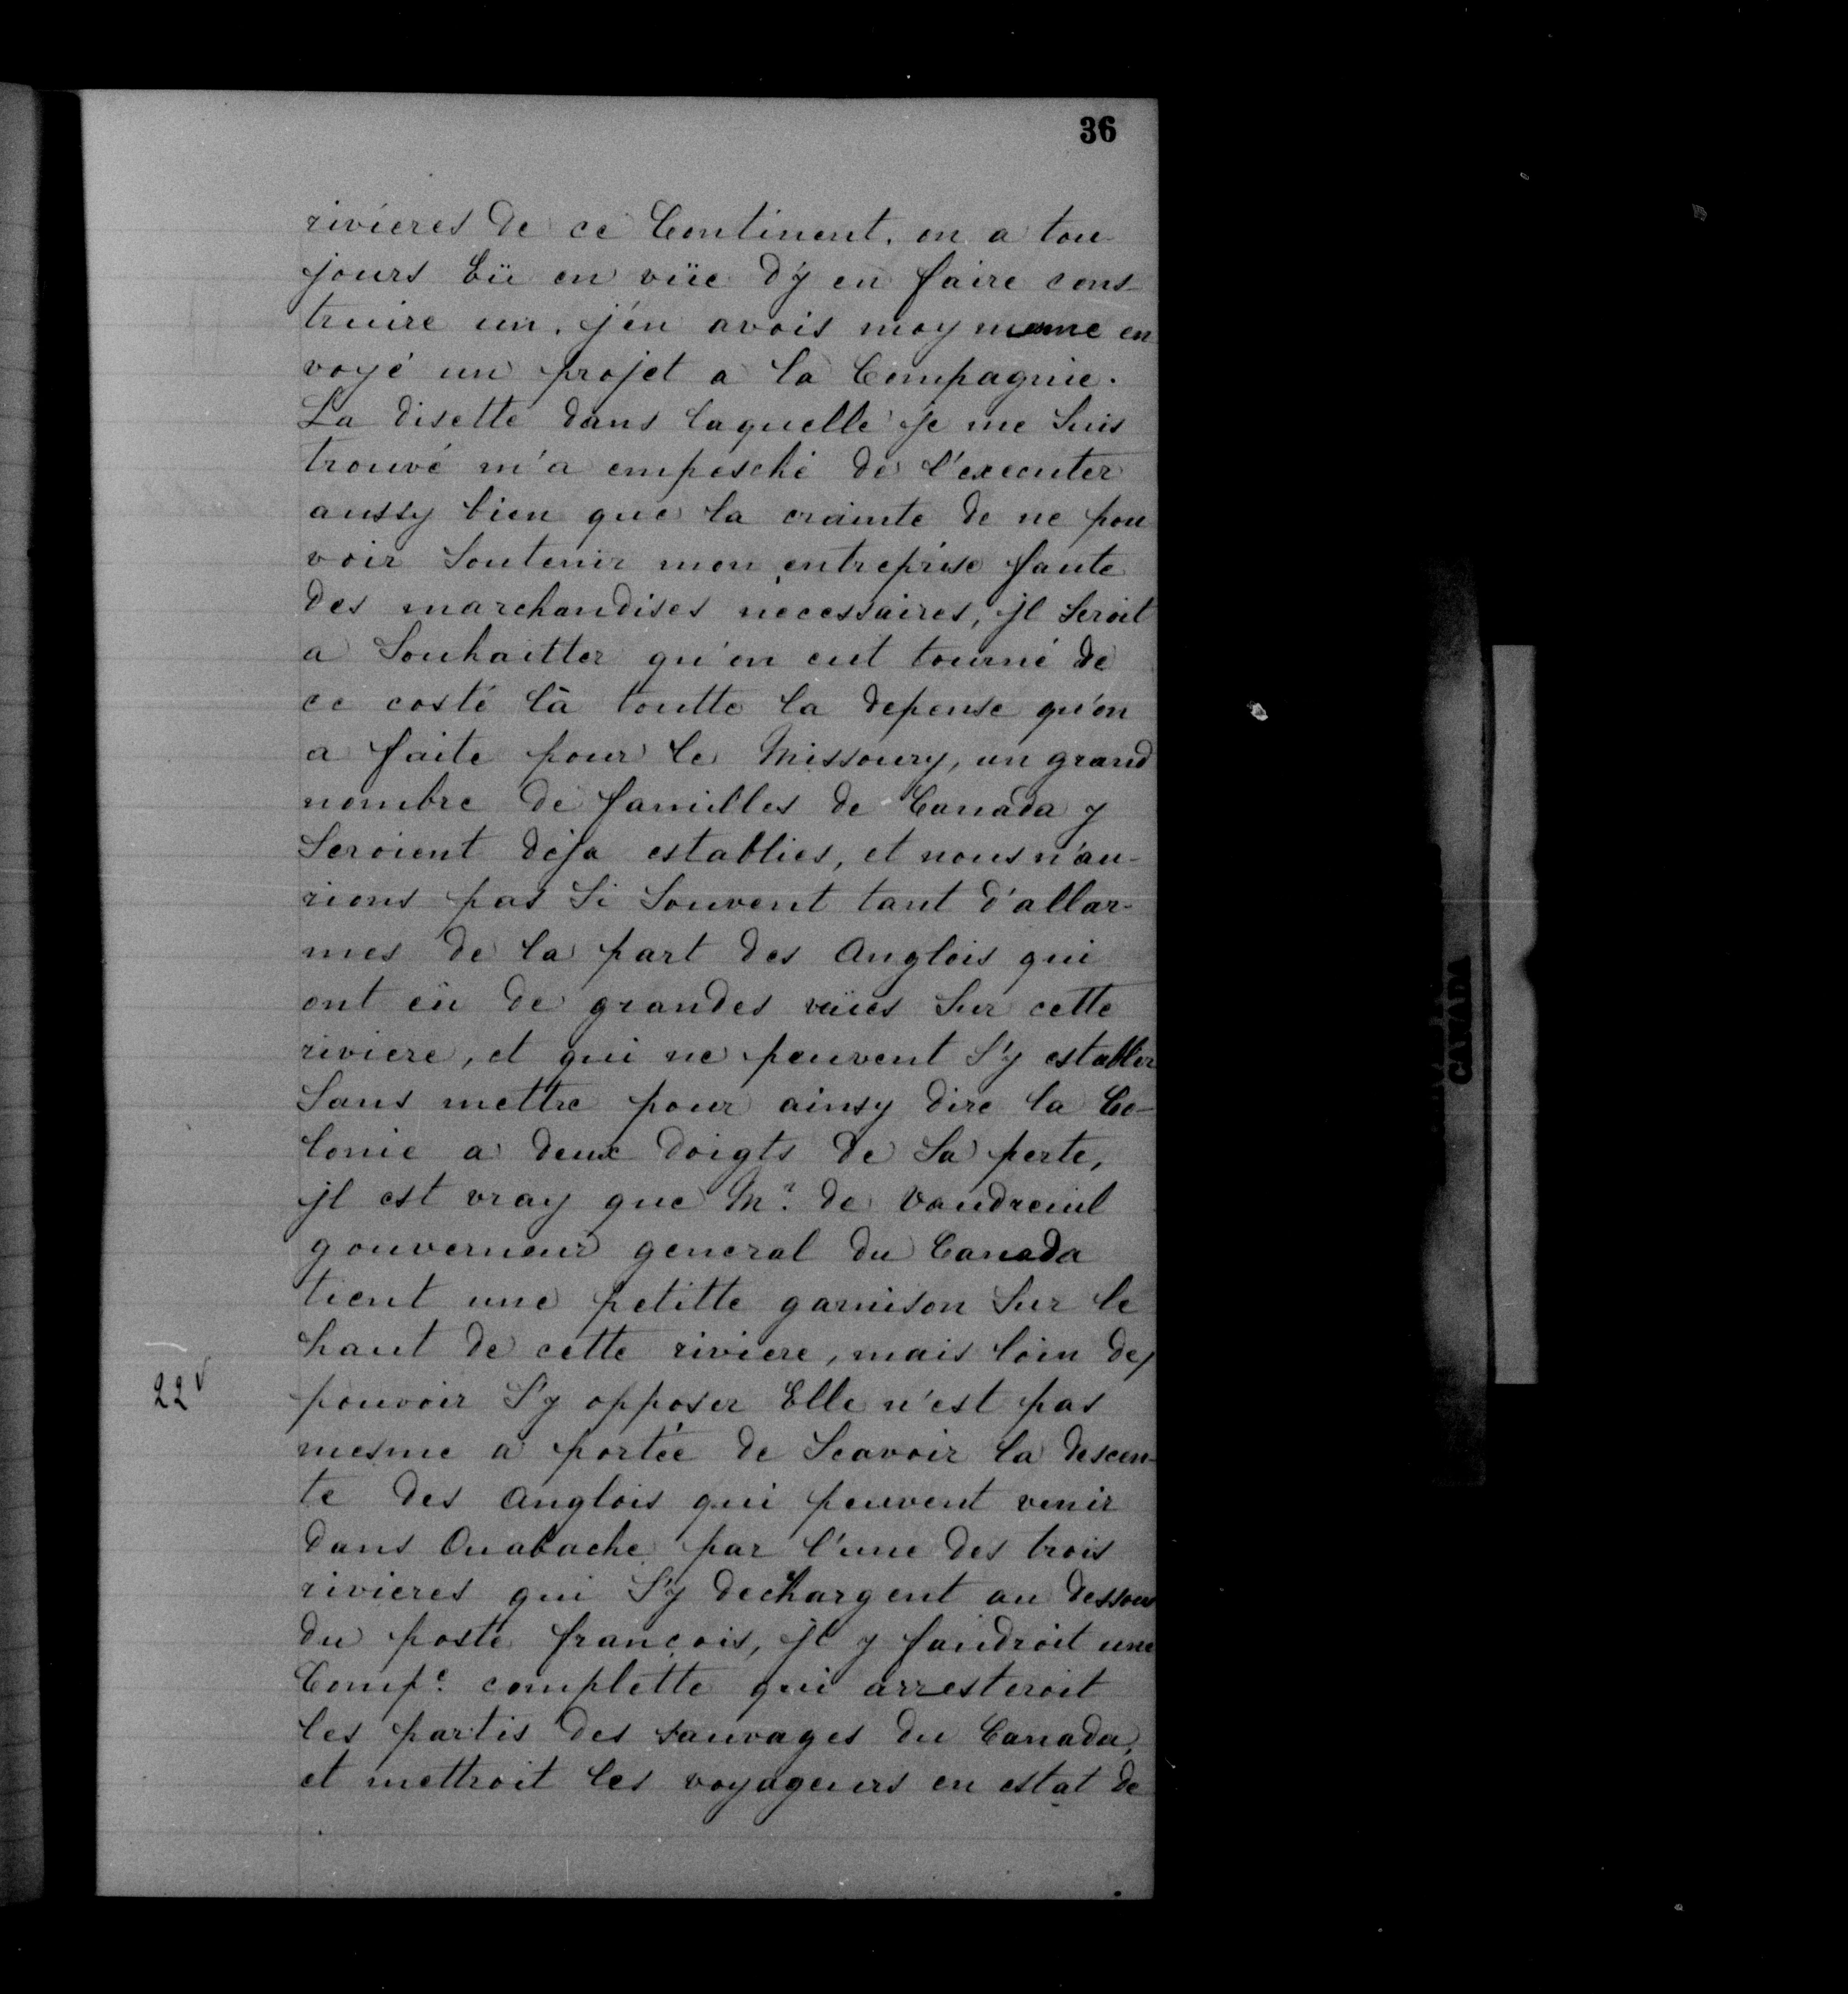 36
rivieres de ce Continent. on a tou
jours Eü en vüe d'y en faire cons-
truire un. j'en avois moy mesme en
voyé un projet a la Compagnie.
La disette dans laquelle je me Suis
trouvé m'a empesché de l'executer
aussy bien que la crainte de ne pou
voir Soutenir mon entreprise faute
des marchandises necessaires, jl Seroit
a Souhaitter qu'on eut tourné de
ce costé là toutte la depense qu'on
a faite pour le Missoury, un grand
nombre de familles de Canada y
Seroient deja establies, et nous n'au-
rions pas Si Souvent tant d'allar-
mes de la part des Anglois qui
ont eü de grandes vüies Sur cette
riviere, et qui ne peuvent S'y establir
Sans mettre pour ainsy dire la Co-
lonie a deux doigts de Sa perte,
jl est vray que Mr. de Vaudreuil
gouverneur general du Canada
tient une petitte garnison Sur le
haut de cette riviere, mais loin de
22v pouvoir S'y opposer Elle n'est pas
mesme a portée de Scavoir la descen-
te des Anglois qui peuvent venir
dans Ouabache par l'une des trois
rivieres qui S'y dechargent au dessous
du poste françois, jl y faudroit une
Compe. complette qui arresteroit
les partis des sauvages du Canada,
et mettroit les voyageurs en estat de
CANADA